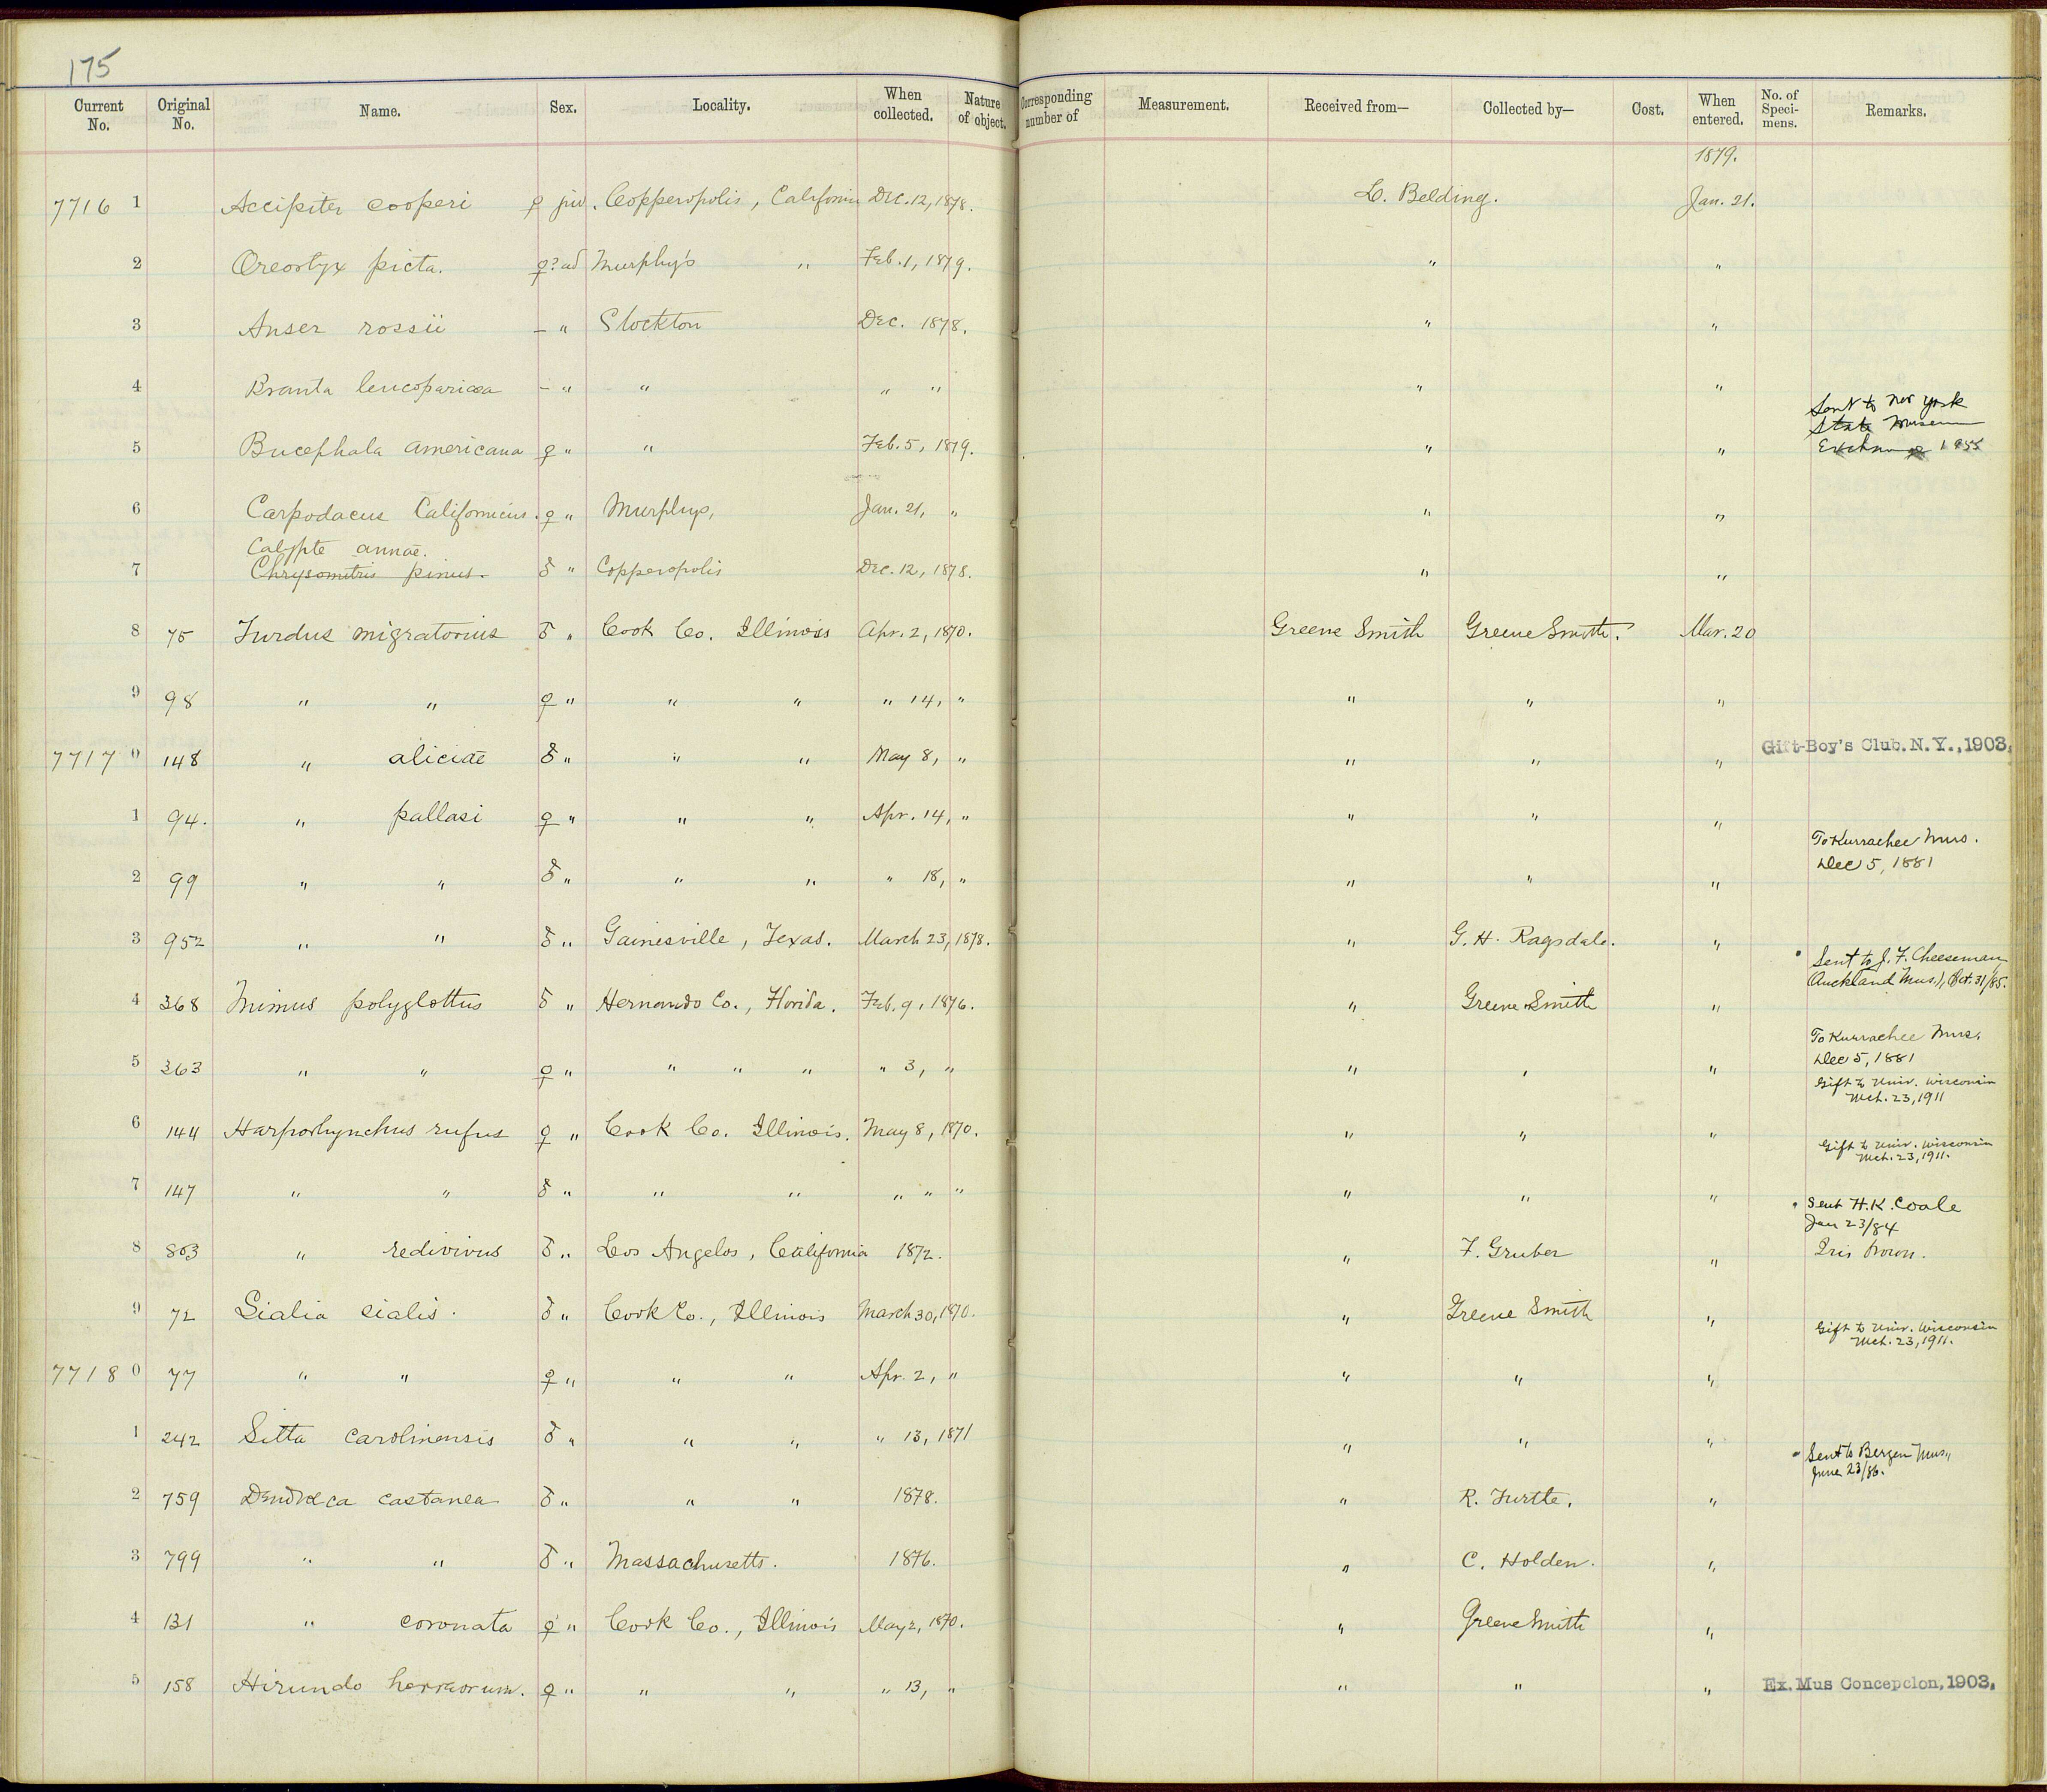 175
Current No. Original No. Name. Sex. Locality. When collected. Nature of object. Corresponding number of Measurement. Received from— Collected by— Cost. When entered. No. of Speci-mens. Remarks.
1879.
77161 Accipiter cooperi ♀ juv. Copperopolis, California Dec. 12, 1878. L. Belding. Jan. 21.
2 Oreortyx picta. ♀? ad Murphy's " Feb. 1, 1879. " "
3 Anser rossii – " Stockton Dec. 1878. " "
4 Branta leucopariaea – " " " " " "
Sent to New York
State Museum
5 Bucephala americana ♀ " " Feb. 5, 1879. " " Exchange 1955
6 Carpodacus Californicus. ♀ " Murphys, Jan. 21, " " "
Calypte annae.
7 Chrysomitris pinus. ♂ " Copperopolis Dec. 12, 1878. " "
8 75 Turdus migratorius ♂ " Cook Co. Illinois Apr. 2, 1870. Greene Smith Greene Smith. Mar. 20
9 98 " " ♀ " " " " 14, " " " "
77170 148 " aliciae ♂ " " " May 8, " " " " Gift-Boy's Club. N. Y., 1903.
1 94. " pallasi ♀ " " " Apr. 14, " " " "
To Kurrachee Mus.
Dec 5, 1881
2 99 " " ♂ " " " " 18, " " " "
3 952 " " ♂ " Gainesville, Texas. March 23, 1878. " G. H. Ragsdale. "
Sent to J. F. Cheeseman
Auckland Mus.), Oct. 31/85.
4 368 Mimus polyglottus ♂ " Hernando Co., Florida. Feb. 9, 1876. " Greene Smith "
To Kurrachee Mus.
Dec 5, 1881
5 363 " " ♀ " " " " " 3, " " " "
Gift to Univ. Wisconsin
Mch. 23, 1911
6 144 Harporhynchus rufus ♀ " Cook Co. Illinois. May 8, 1870. " " "
Gift to Univ. Wisconsin
Mch. 23, 1911.
7 147 " " ♂ " " " " " " " " "
Sent H. K. Coale
Jan 23/84
8 803 " redivivus ♂ " Los Angelos, California 1872. " F. Gruber " Iris brown.
9 72 Sialia sialis. ♂ " Cook Co., Illinois March 30, 1870. " Greene Smith "
Gift to Univ. Wisconsin
Mch. 23, 1911.
77180 77 " " ♀ " " " Apr. 2, " " " "
1 242 Sitta carolinensis ♂ " " " " 13, 1871 " " "
Sent to Bergen Mus.,
June 23/86.
2 759 Dendroeca castanea ♂ " " " 1878. " R. Turtle. "
3 799 " " ♂ " Massachusetts. 1876. " C. Holden. "
4 131 " coronata ♀ " Cook Co., Illinois May 2, 1870. " Greene Smith "
5 158 Hirundo horreorum. ♀ " " " " 13, " " " " Ex. Mus Concepcion, 1903.